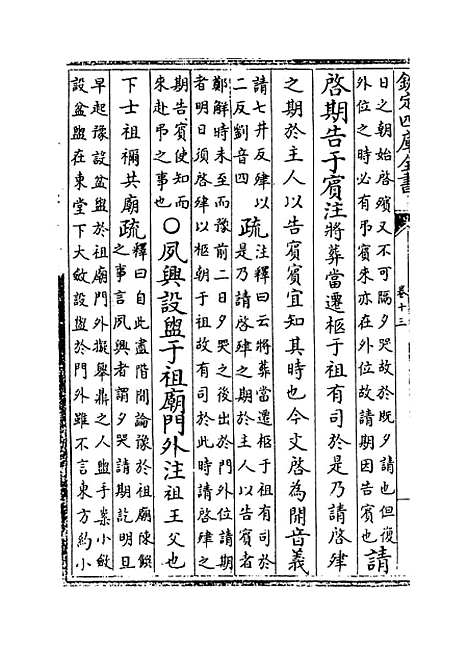 欽定四庫全書
卷十三
日之朝始啓殯又不可隔夕哭故於既夕請也但復
外位之時必有弔賓來亦在外位故請期因告賓也請
啓期告于賓注將葬當遷柩于祖有司於是乃請啓肂
之期於主人以告賓賓宜知其時也今文啓為開音義
請七井反肂以
二反劉音四
疏
注釋曰云將葬當遷柩于祖有司於
是乃請啓肂之期於主人以告賓者
鄭解時未至而豫前二日夕哭之後出於門外位請期
者明日須啓肂以柩朝于祖故有司於此時請啓肂之
期告賓使知而
來赴弔之事也
○夙興設盥于祖廟門外注祖王父也
下士祖禰共廟疏
釋曰自此盡階間論豫於祖廟陳饌
之事言夙興者謂夕哭請期訖明旦
早起豫設盆盥於祖廟門外擬舉鼎之人盥手案小斂
設盆盥在東堂下大斂設盥於門外雖不言東方約小